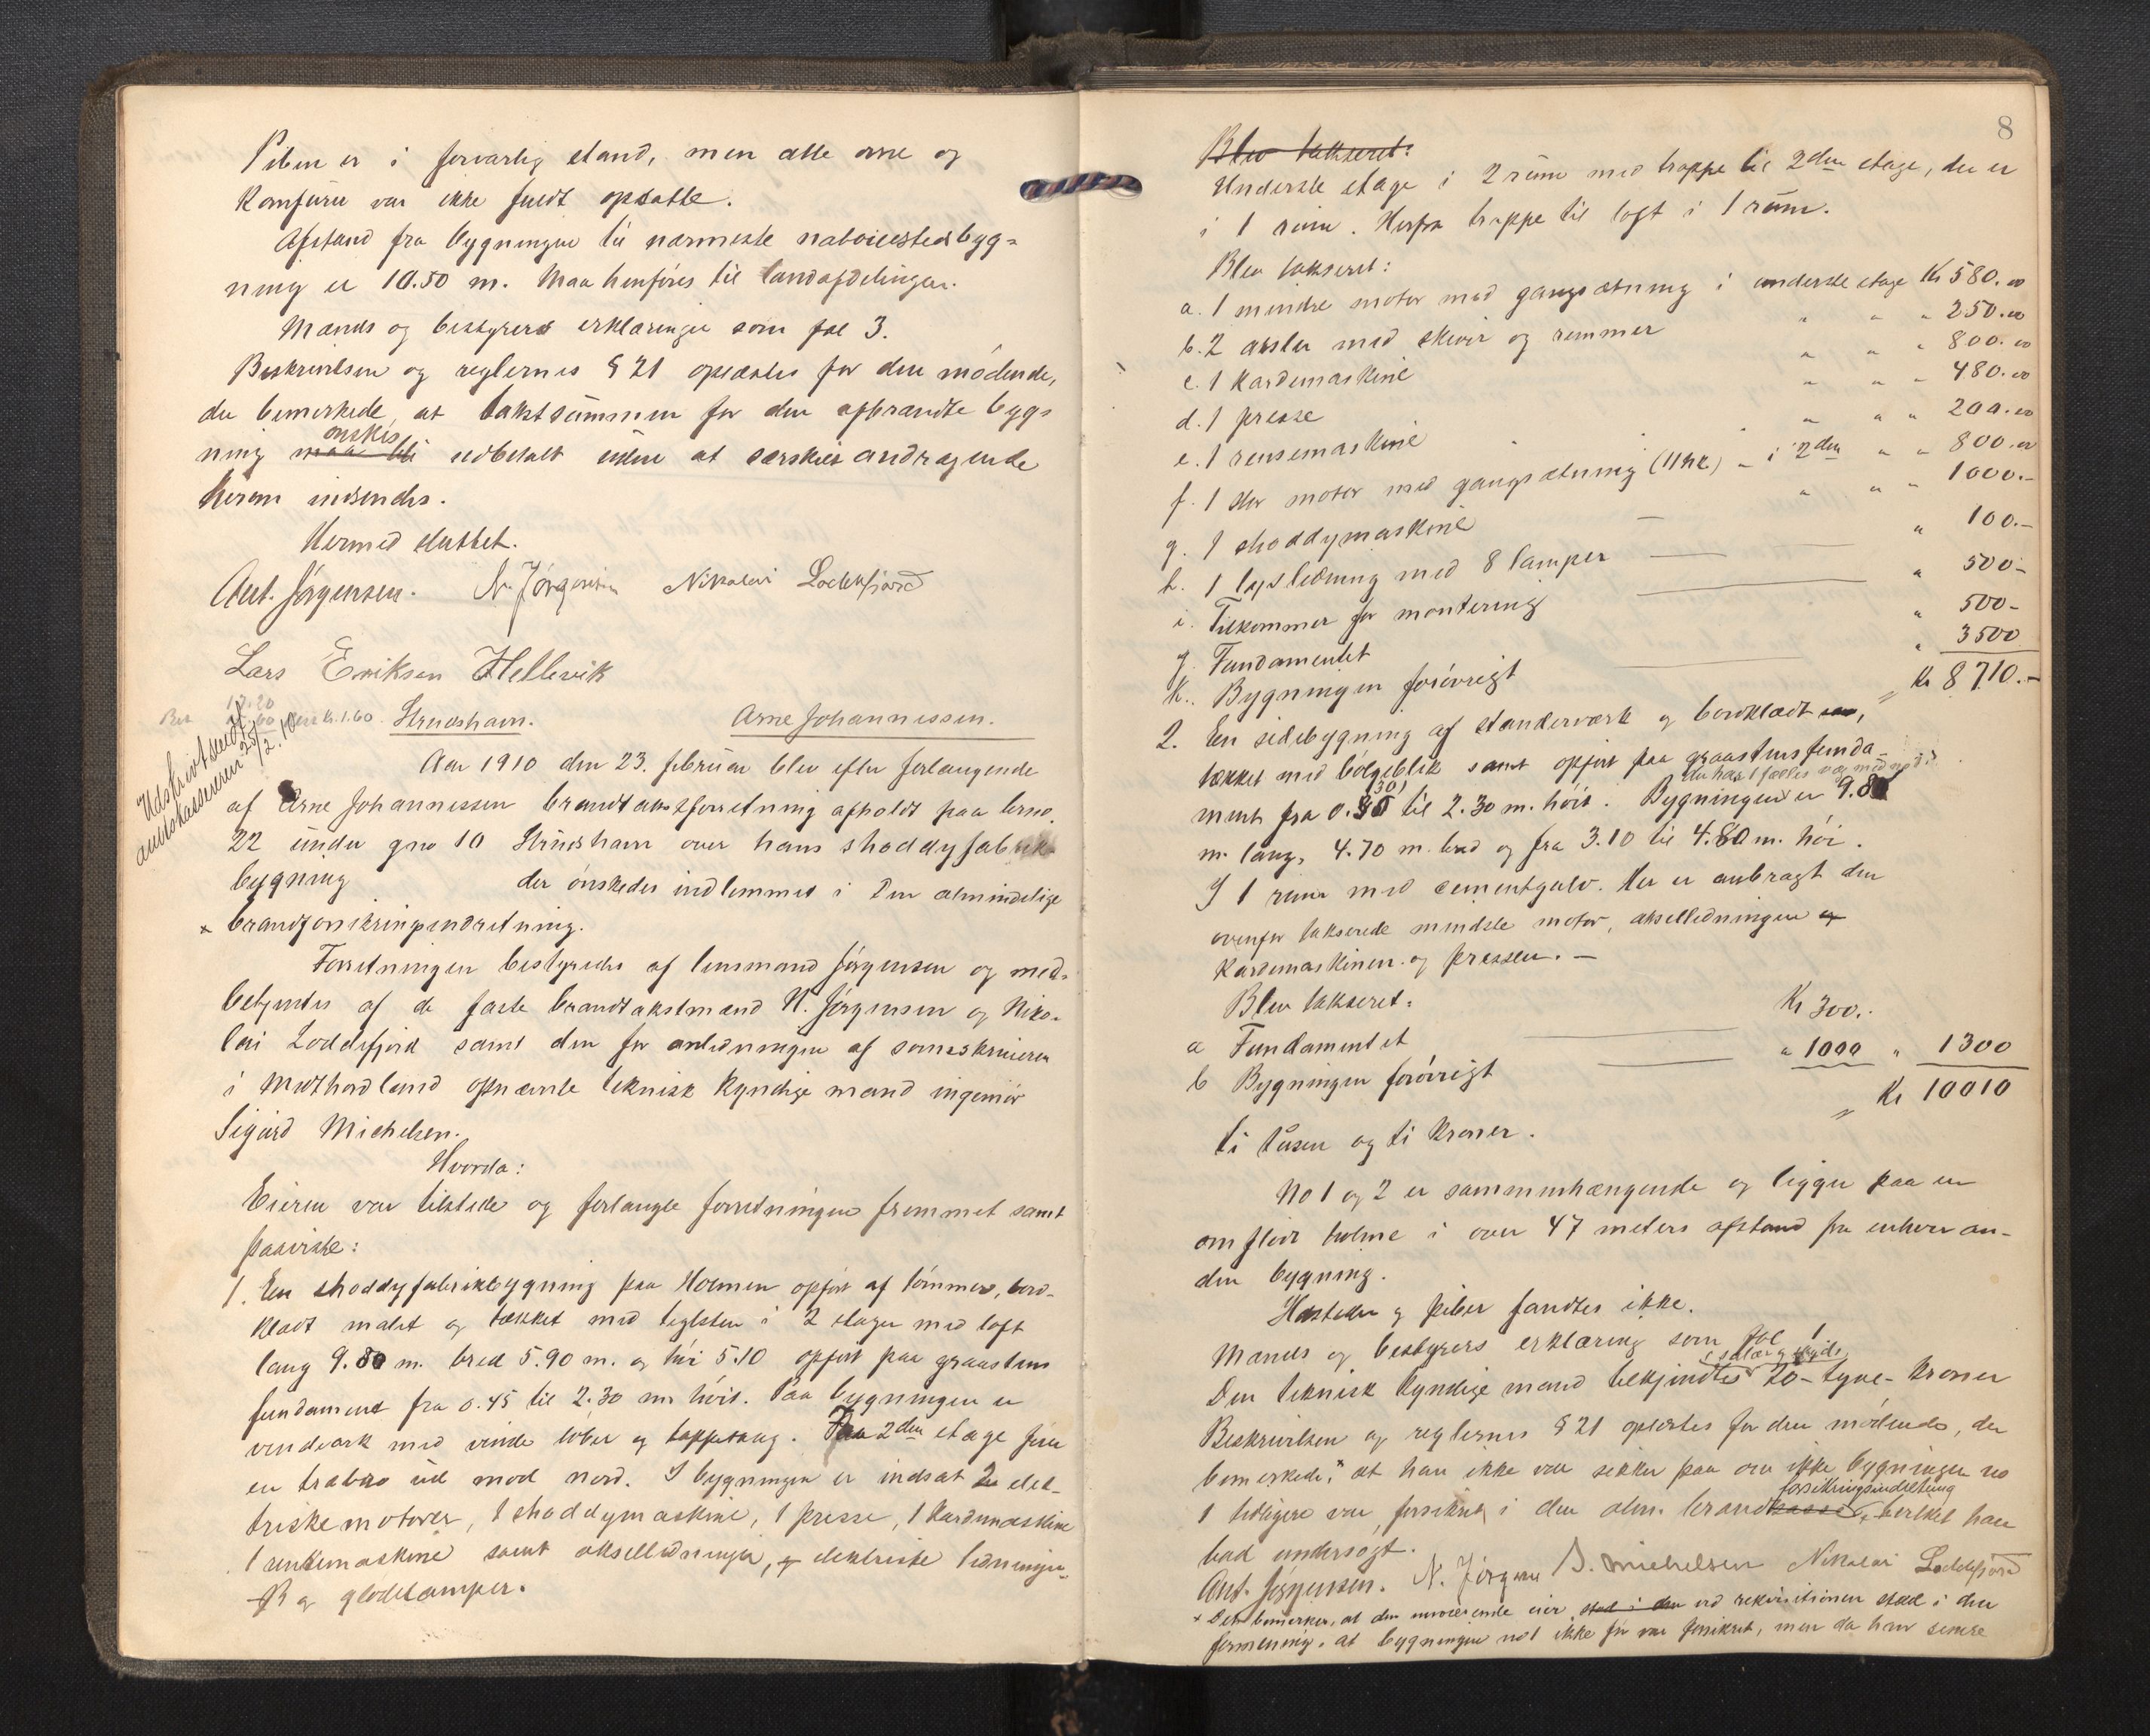 Piben er i forvarlig stand, men alle orne og
Komfurer var ikke fuldt opsatte.
Afstand fra bygningen til nærmeste nabo ildstedsbyg-
ning er 10.50 m. Maa henføres til landafdelingen.
Mænds og bestyrers erklæringer som fol 3.
Beskrivelsen og reglernes § 21 oplæstes for den mødende,
der bemerkede, at takstsummen for den afbrændte byg-
ning maa bli ønskes udbetalt uden at særskilt andragende
herom indsendes.
Hermed sluttet.
Ant. Jørgensen. N. Jørgensen Nikolai Loddefjord
Lars Eriksen Hellevik
Strudshavn. Arne Johannessen.
Udskrivt sendt
amtskasseren 25/2. 10
Aar 1910 den 23. februar blev efter forlangende
af Arne Johannessen brandtakstforretning afholdt paa brno.
22 under gno 10 Strudshavn over hans shoddyfabrik
bygning der ønskedes indlemmet i Den almindelige
x brandforsikringsindretning.
Forretningen bestyredes af lensmand Jørgensen og med-
betjentes af de faste brandtakstmænd N. Jørgensen og Niko-
lai Loddefjord samt den for anledningen af sorenskriveren
i Midthordland opnævnte teknisk kyndige mand ingeniør
Sigurd Michelsen.
Hvorda:
Eieren var tilstede og forlangte forretningen fremmet samt
paaviste:
1. En shoddyfabrikbygning paa Holmen opført af tømmer, bord-
klædt malet og tækket med teglsten i 2 etager med loft
lang 9.80 m. bred 5.90 m. og høi 5.10 opført paa graastens
fundament fra 0.45 til 2.30 m høit. Paa bygningen er
vindeark med vinde løber og toppetaug. Fra 2den etage fører
en træbro ud mod nord. I bygningen er indsat 2 elek-
triske motorer, 1 shoddymaskine, 1 presse, 1 Kardemaskine
1 rensemaskine samt aksellædninger, og elektriske ledninger
og glødelamper.
8
Blev takseret:
Underste etage i 2 rum med trappe til 2den etage, der er
i 1 rum. Herfra trappe til loft i 1 rum.
Blev takseret:
a. 1 mindre motor med gangsætning i underste etage Kr 580.00
b. 2 aksler med skiver og remmer " " " 250.00
c. 1 Kardemaskine " " " 800.00
d. 1 presse " " " 480.00
e. 1 rensemaskine " " " 200.00
f. 1 stor motor med gangsætning (11 HK) - i 2den " " 800.00
g. 1 shoddymaskine " " " 1000.-
h. 1 lysledning med 8 lamper " 100.-
i. Tilkommer for montering " 500-
j. Fundamentet " 500-
k. Bygningen forøvrigt " 3500
Kr 8710.-
2. En sidebygning af standerværk og bordklædt,
tækket med bølgeblik samt opført paa graastensfunda-
ment fra 0.30 (30) til 2.30 m. høit. Bygningen der har 1 fælles væg med no 1 er 9.80
m. lang, 4.70 m. bred og fra 3.10 til 4.80 m. høi.
I 1 rum med cementgulv. Her er anbragt den
ovenfor takserede mindste motor, akselledningen og
Kardemaskinen og pressen. -
Blev takseret:
a Fundamentet Kr 300.-
b Bygningen forøvrigt " 1000 " 1300
Kr 10010
ti tusen og ti Kroner.
No 1 og 2 er sammenhængende og ligger paa en
omfløt holme i over 47 meters afstand fra enhver an-
den bygning.
Ildsteder og piber fandtes ikke.
Mænds og bestyrers erklæring som fol 1
Den teknisk kyndige mand betjendtes i salær og skyds 20 - tyve - Kroner
Beskrivelsen og reglernes § 21 oplæstes for den mødende, der
bemerkede, x at han ikke var sikker paa om ikke bygningen no
1 tidligere var forsikret i den alm. brandkasse forsikringsindretning, hvilket han
bad undersøgt.
Ant. Jørgensen. N. Jørgensen S. Michelsen Nikolai Loddefjord
x Det bemerkes, at den nuværende eier stod i den ved rekvisitionen stod i den
formening, at bygningen no 1 ikke før var forsikret, men da han senere